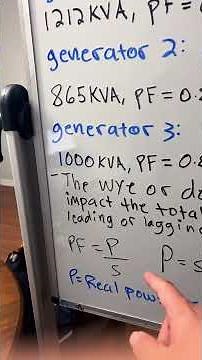 1212KVA, PF =
generator 2:
865KVA, PF = 0.
generator 3:
1000KVA, PF = 0.
- The wye or
impact the total
leading or
PF = P/S P =
P = Real